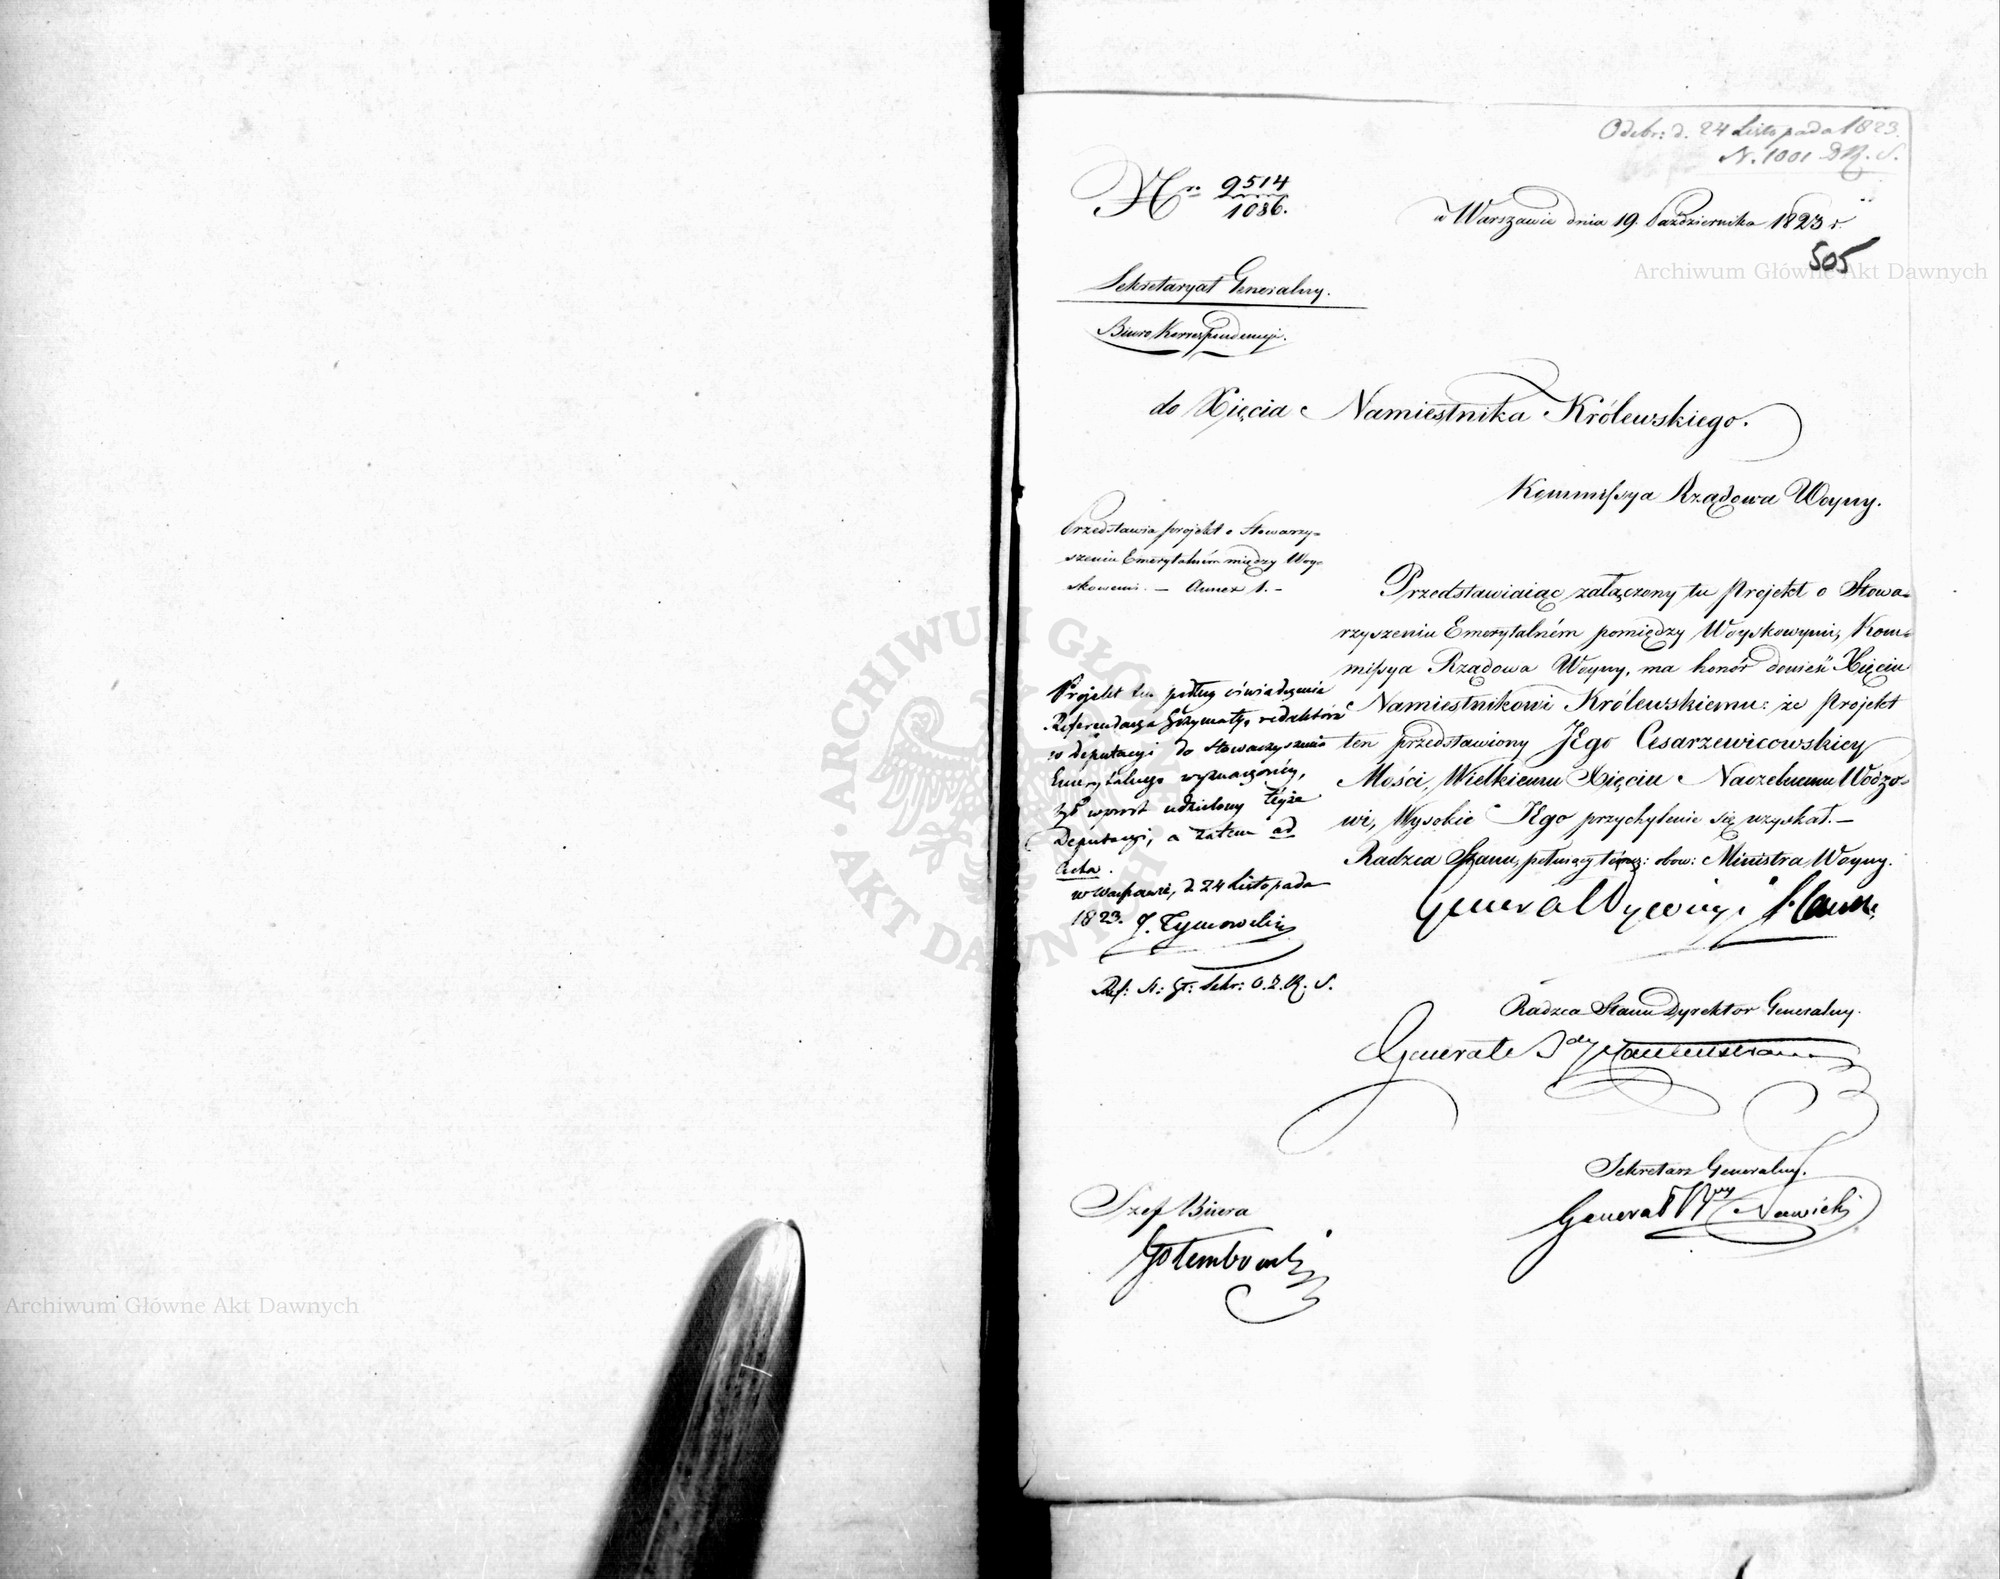 Odebr: d. 24 Listopada 1823.
N. 1001 D.R.S.
Nr. 9514
1086.
w Warszawie dnia 19. Października 1823 r.
505
Archiwum Główne Akt Dawnych
Sekretaryat Generalny.
Biuro Korrespondencyi.
do Xięcia Namiestnika Królewskiego.
Kommissya Rządowa Woyny.
Przedstawia projekt o Stowarzy-
szeniu Emerytalném między Woy-
skowemi. — Annex 1. —
Przedstawiaiąc załączony tu Projekt o Stowa-
rzyszeniu Emerytalném pomiędzy Woyskowymi, Kom-
missya Rządowa Woyny, ma honor donieść Xięciu
Namiestnikowi Królewskiemu: że Projekt
ten przedstawiony JEgo Cesarzewicowskiey
Mości, Wielkiemu Xięciu Naczelnemu Wodzo-
wi, Wysokie JEgo przychylenie się uzyskał. —
Radzca Stanu, pełniący tymcz: obow: Ministra Woyny.
Generał Dywizyi Hauke
Projekt ten podług oświadczenia
Referendarza Grzymały, redaktora
w deputacyi do Stowarzyszenia
Emerytalnego wyznaczonéy,
był wprost udzielony teyże
Deputacyi, a zatem ad
Acta.
w Warszawie, d. 24 Listopada
1823. J. Tymowski
Ref: St: Sekr: R. S.
Radzca Stanu Dyrektor Generalny.
Generał
Sekretarz Generalny.
Generał Nowicki
Szef Biura
Gołembowski
Archiwum Główne Akt Dawnych
ARCHIWUM GŁÓWNE AKT DAWNYCH